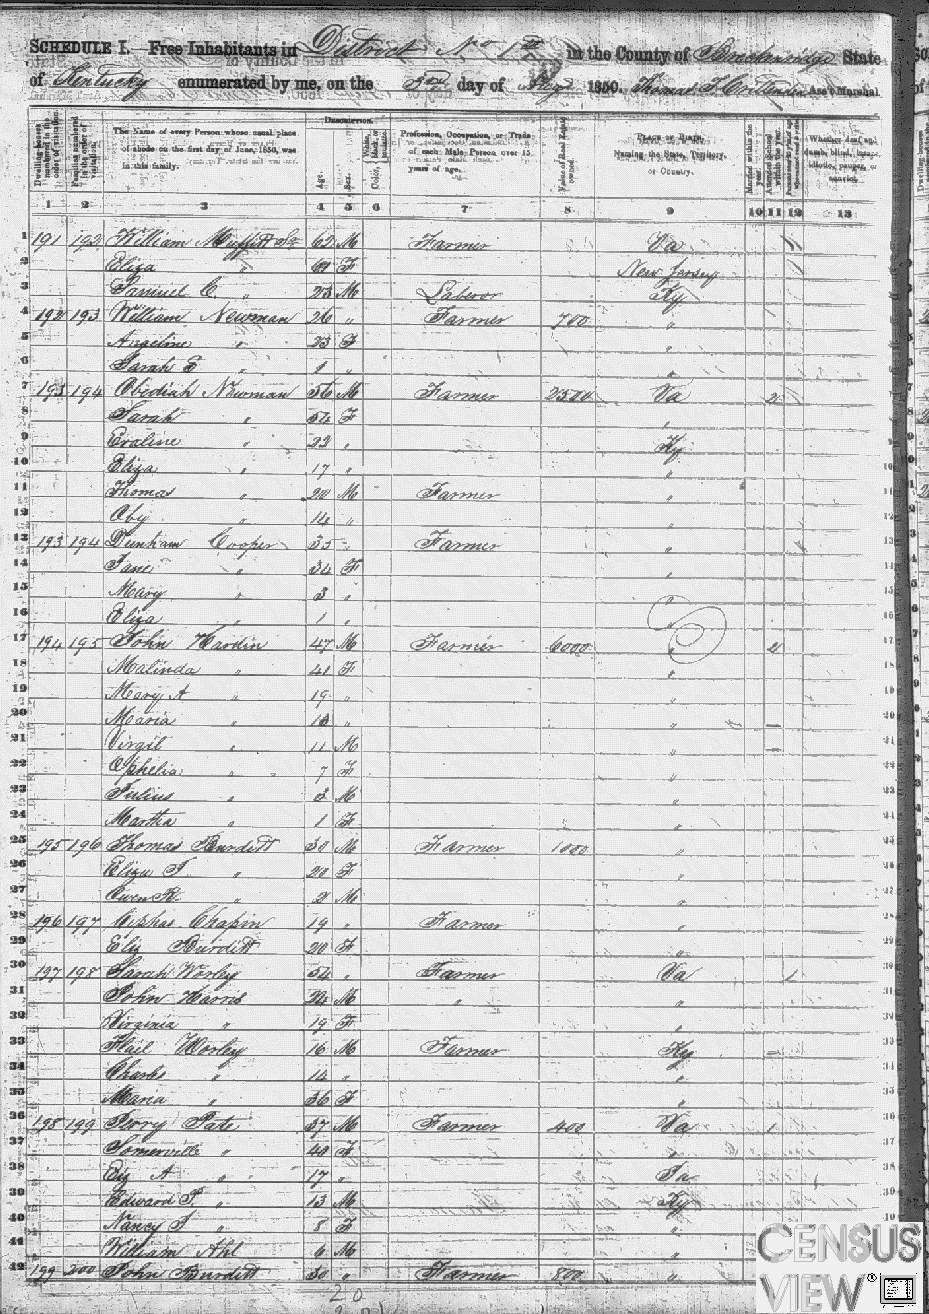 SCHEDULE I.—Free Inhabitants in District No 1st in the County of Breckenridge State
of Kentucky enumerated by me, on the day of 1850. Thomas J Crittenden Ass't Marshal.
Dwelling-houses numbered in the order of visitation.
Families numbered in the order of visitation.
The Name of every Person whose usual place of abode on the first day of June, 1850, was in this family.
DESCRIPTION.
Age.
Sex.
Color, White, black, or mulatto.
Profession, Occupation, or Trade of each Male Person over 15 years of age.
Value of Real Estate owned.
PLACE OF BIRTH, Naming the State, Territory, or Country.
Married within the year.
Attended School within the year.
Whether deaf and dumb, blind, insane, idiotic, pauper, or convict.
1 2 3 4 5 6 7 8 9 10 11 12 13
1 191 192 William Muffitt Sr 62 M Farmer Va
Eliza " F New Jersey
3 Samuel C. " 23 M Laboror Ky
4 192 193 William Newman 26 " Farmer 700 "
5 Angeline " 23 F "
6 Sarah E " 1 " "
7 193 194 Obediah Newman 56 M Farmer 2500 Va 2
8 Sarah " 54 F "
9 Evaline " 22 " Ky
10 Eliza " 17 " "
11 Thomas " 20 M Farmer "
12 Oby " 14 " "
13 193 194 Dunham Cooper 35 " Farmer "
14 Jane " 34 F "
15 Mary " 3 " "
16 Eliza " 1 " "
17 194 195 John Hardin 47 M Farmer 6000 "
18 Malinda " 41 F "
19 Mary A " 19 "
20 Maria " 13 " "
21 Virgil " 11 M "
22 Ophelia " 7 F "
23 Julius " 3 M "
24 Martha " 1 F "
25 195 196 Thomas Burditt 30 M Farmer 1000 "
26 Eliza J. " 20 F "
27 Owen R. " 2 M "
28 196 197 Cephas Chapin 19 " Farmer
29 Eliz Burditt 20 F "
30 197 198 Sarah Worley 54 " Farmer Va 1
31 John Harris 24 M " "
32 Virginia " 19 F "
33 Flail Worley 16 M Farmer Ky
34 Charls " 14 " "
35 Maria " 36 F "
36 198 199 Perry Pate 37 M Farmer 400 Va 1
37 Somerville " 40 F "
38 Eiz A " 17 "
39 Edward P. " 13 M Ky
40 Nancy J " 8 F "
41 William Ahl 6 M "
42 199 200 John Burditt 30 " Farmer 800 "
20
CENSUS
VIEW